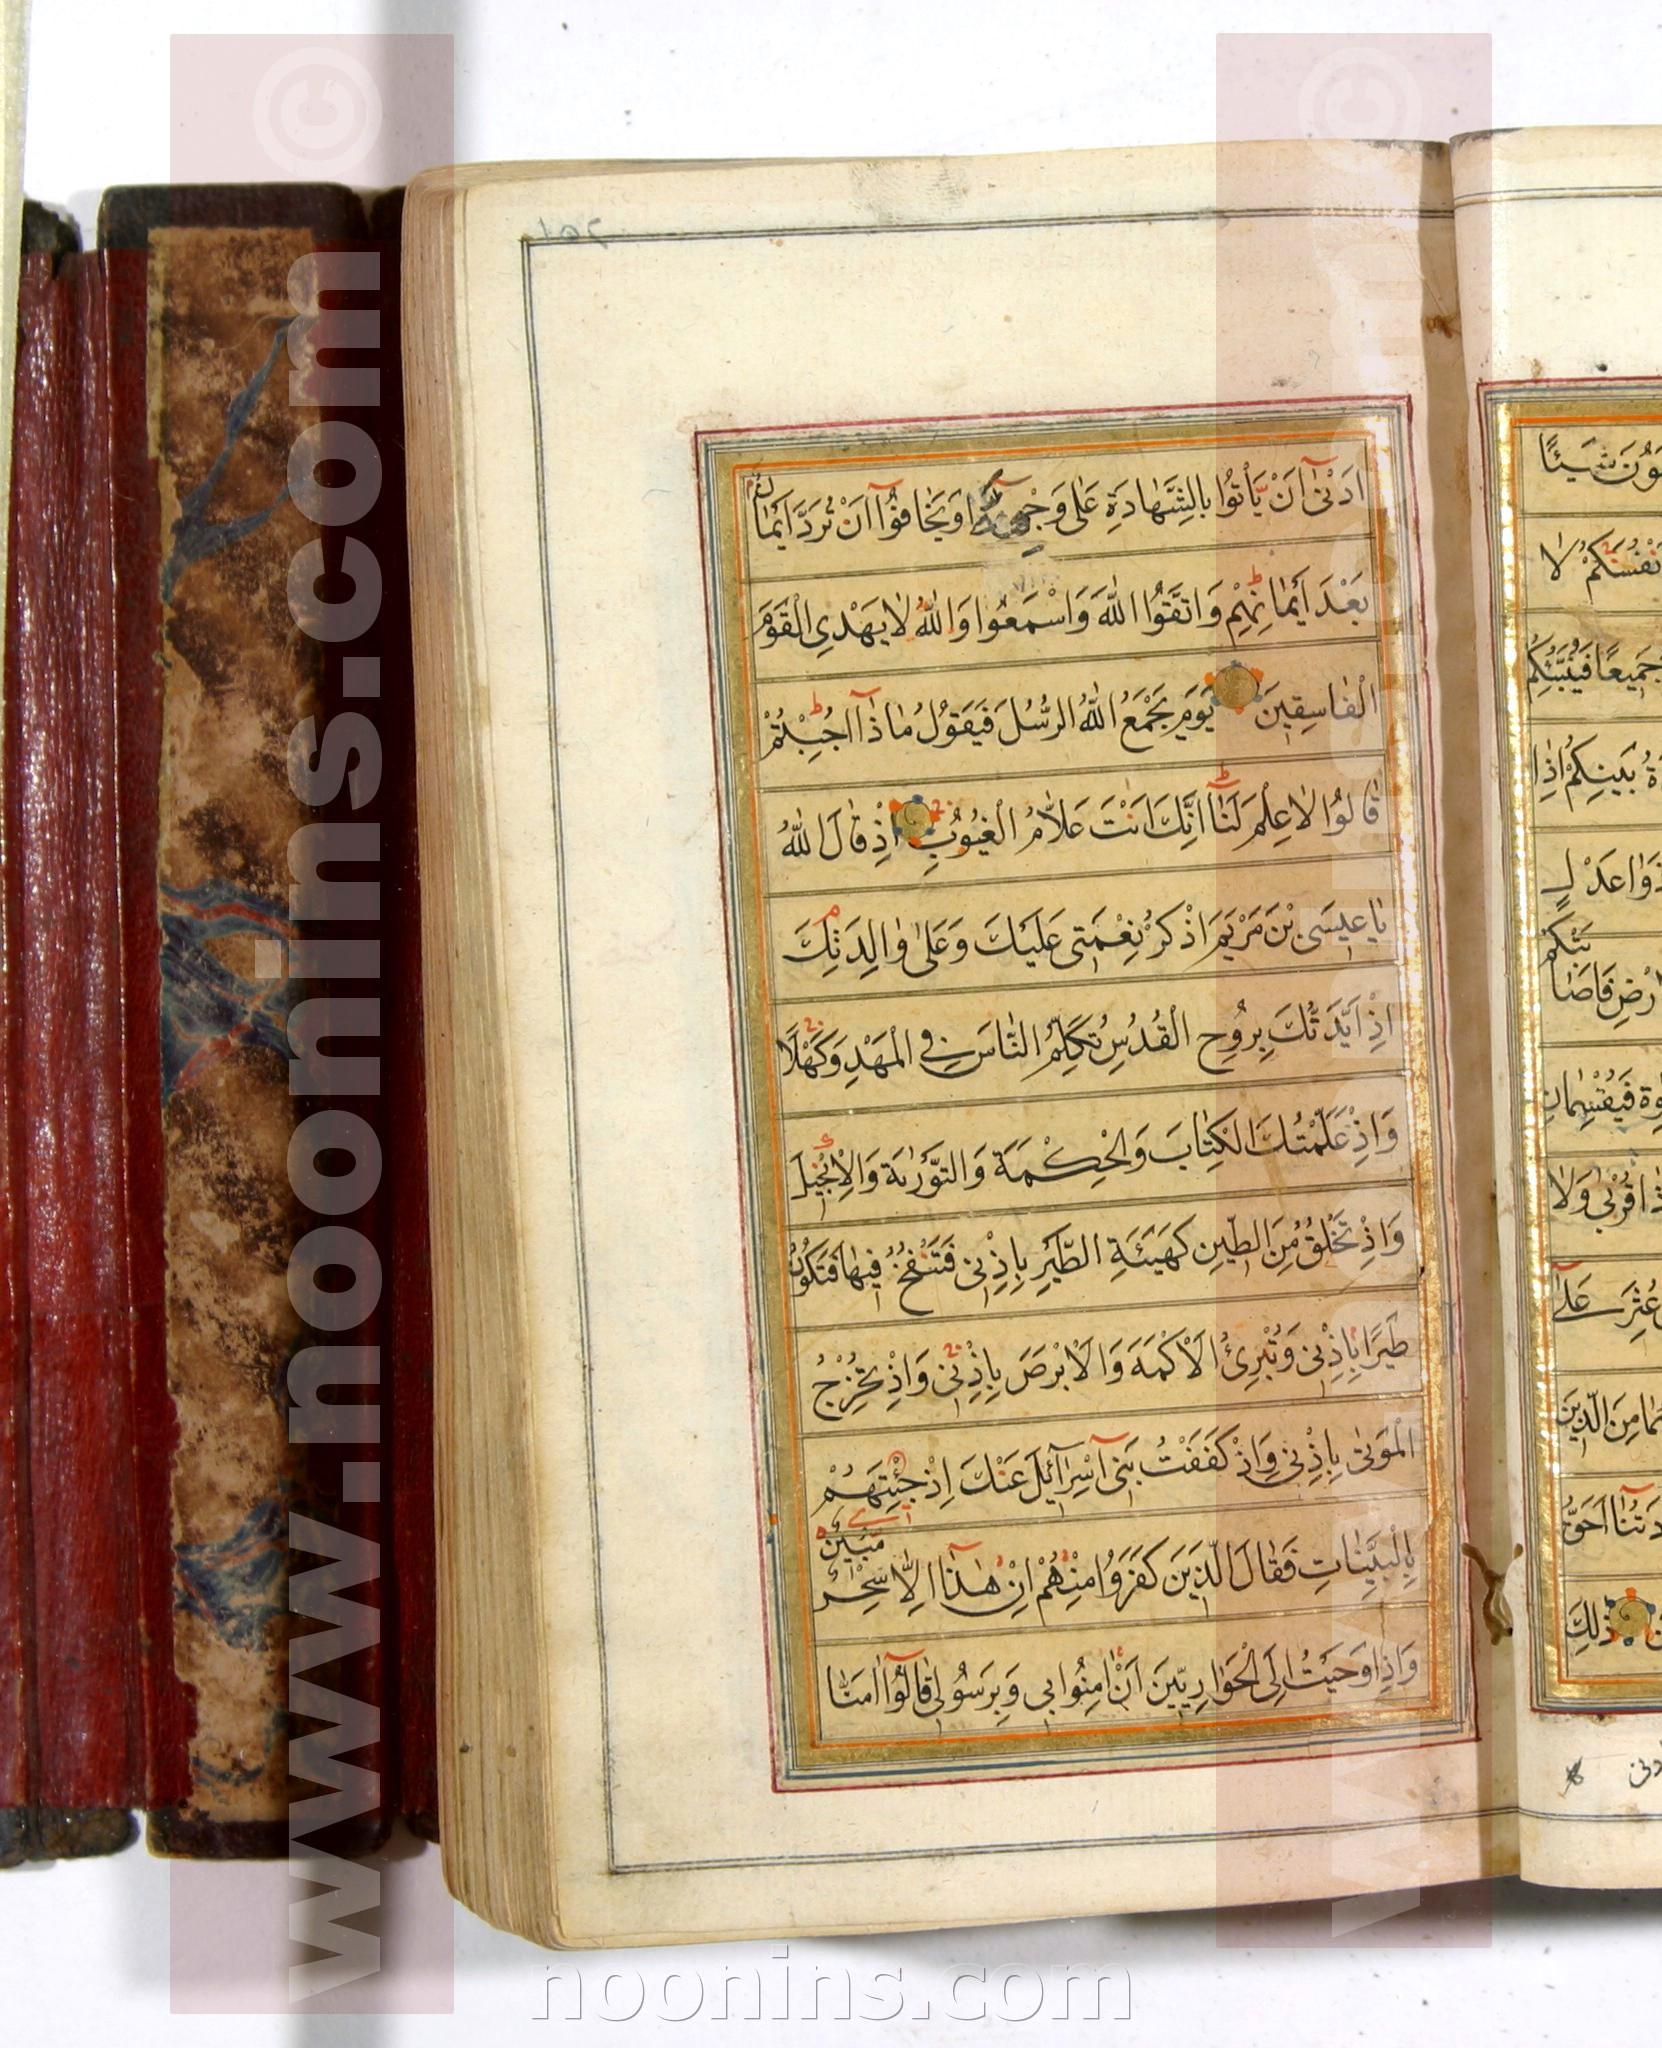 اَدْنٰى اَنْ يَأْتُوا بِالشَّهَادَةِ عَلٰى وَجْهِهَا اَوْ يَخَافُوا اَنْ تُرَدَّ اَيْمَانٌ
بَعْدَ اَيْمَانِهِمْ وَاتَّقُوا اللّٰهَ وَاسْمَعُوا وَاللّٰهُ لَا يَهْدِى الْقَوْمَ
الْفَاسِقِينَ يَوْمَ يَجْمَعُ اللّٰهُ الرُّسُلَ فَيَقُولُ مَاذَا اُجِبْتُمْ
قَالُوا لَا عِلْمَ لَنَا اِنَّكَ اَنْتَ عَلَّامُ الْغُيُوبِ اِذْ قَالَ اللّٰهُ
يَا عِيسَى بْنَ مَرْيَمَ اذْكُرْ نِعْمَتِى عَلَيْكَ وَعَلٰى وَالِدَتِكَ
اِذْ اَيَّدْتُكَ بِرُوحِ الْقُدُسِ تُكَلِّمُ النَّاسَ فِى الْمَهْدِ وَكَهْلًا
وَاِذْ عَلَّمْتُكَ الْكِتَابَ وَالْحِكْمَةَ وَالتَّوْرٰيةَ وَالْاِنْجِيلَ
وَاِذْ تَخْلُقُ مِنَ الطِّينِ كَهَيْئَةِ الطَّيْرِ بِاِذْنِى فَتَنْفُخُ فِيهَا فَتَكُونُ
طَيْرًا بِاِذْنِى وَتُبْرِئُ الْاَكْمَهَ وَالْاَبْرَصَ بِاِذْنِى وَاِذْ تُخْرِجُ
الْمَوْتٰى بِاِذْنِى وَاِذْ كَفَفْتُ بَنِى اِسْرَائِيلَ عَنْكَ اِذْ جِئْتَهُمْ
بِالْبَيِّنَاتِ فَقَالَ الَّذِينَ كَفَرُوا مِنْهُمْ اِنْ هٰذَا اِلَّا سِحْرٌ مُبِينٌ
وَاِذْ اَوْحَيْتُ اِلَى الْحَوَارِيِّينَ اَنْ اٰمِنُوا بِى وَبِرَسُولِى قَالُوا اٰمَنَّا
شَيْئًا
اَنْفُسَكُمْ لَا
جَمِيعًا فَيُنَبِّئُكُمْ
بَيْنِكُمْ اِذَا
ذَوَا عَدْلٍ
الْاَرْضِ فَاَصَابَتْكُمْ
فَيُقْسِمَانِ
ذَا قُرْبٰى وَلَا
عُثِرَ عَلٰى
مِنَ الَّذِينَ
اَحَقُّ
ذٰلِكَ
www.noonins.com ©
noonins.com